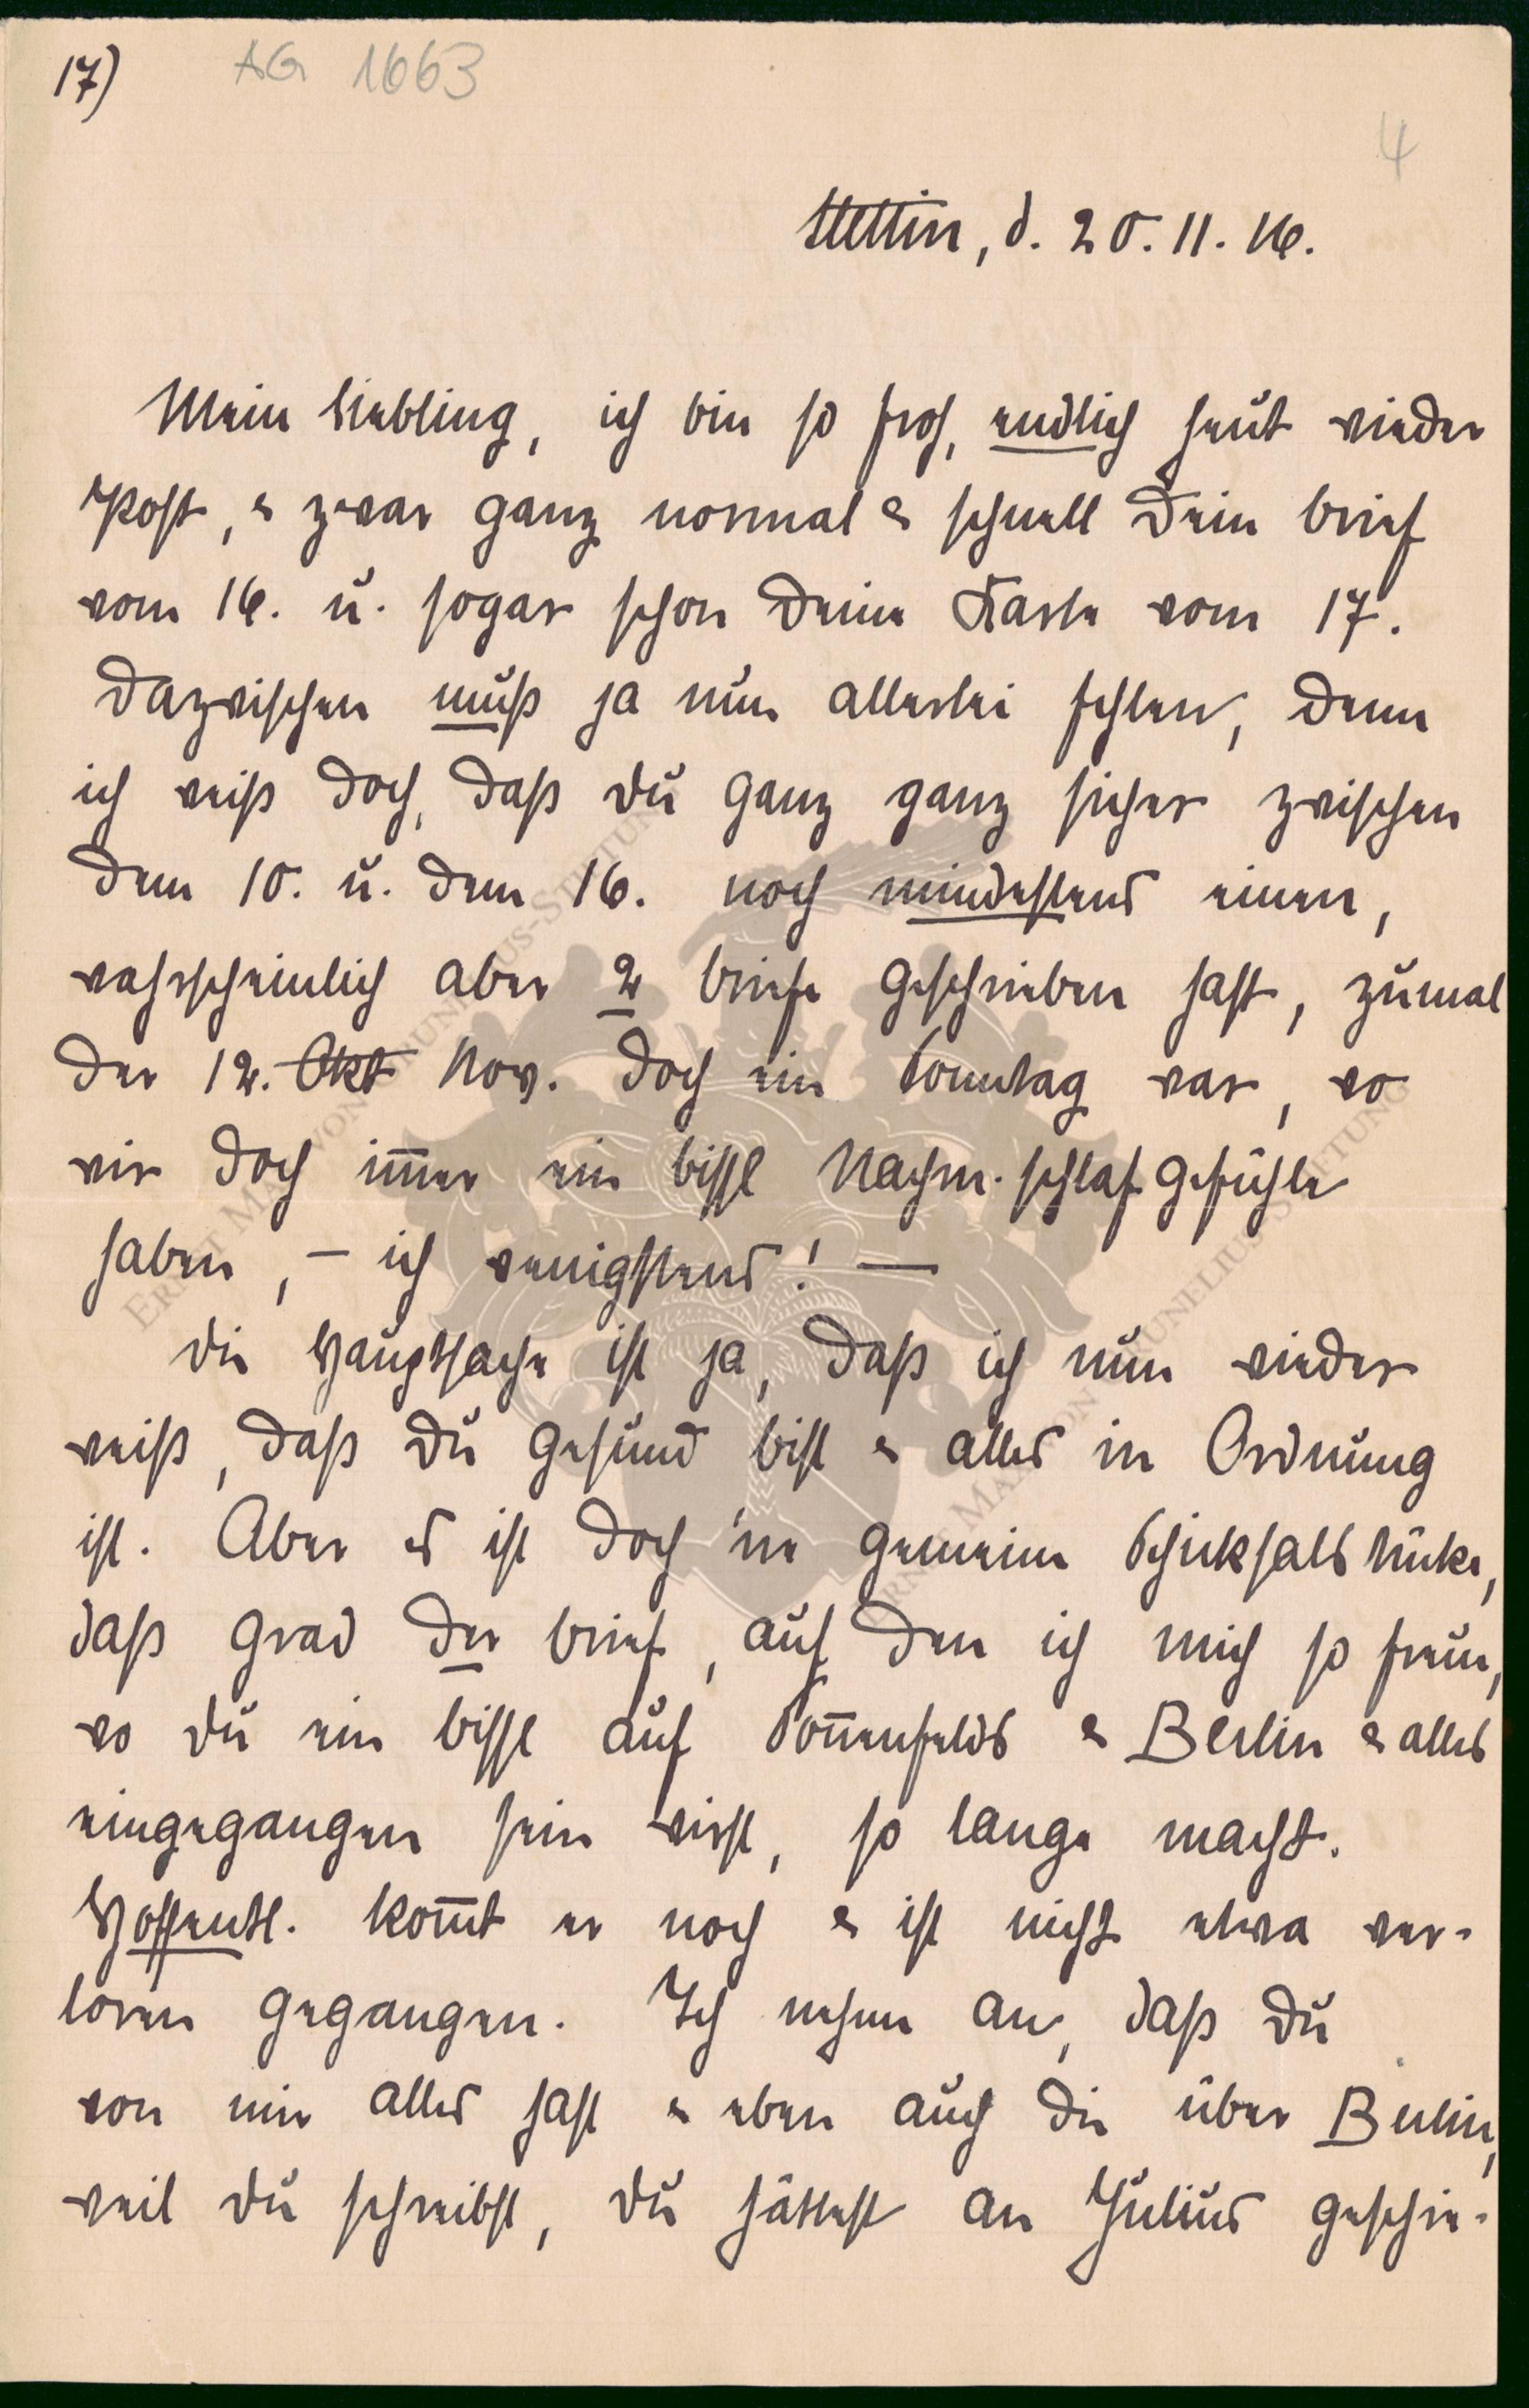 17)
AG 1663
4
Stettin, d. 20. 11. 16.
Mein Liebling, ich bin so froh, endlich heut wieder
Post, & zwar ganz normal & schnell Dein Brief
vom 16. u. sogar schon Deine Karte vom 17.
Dazwischen muß ja nun allerlei fehlen, denn
ich weiß doch, daß Du ganz ganz sicher zwischen
dem 10. u. dem 16. noch mindestens einen,
wahrscheinlich aber 2 Briefe geschrieben hast, zumal
der 12. Okt Nov. doch ein Sonntag war, wo
wir doch im̅er ein bissl Nachm. schlaf gefühle
haben, – ich wenigstens! —
Die Hauptsache ist ja, daß ich nun wieder
weiß, daß Du gesund bist & alles in Ordnung
ist. Aber es ist doch 'ne gemeine Schicksalstücke,
daß grad der Brief, auf den ich mich so freue,
wo Du ein bissl auf Son̅enfelds & Berlin & alles
eingegangen sein wirst, so lange macht.
Hoffentl. kom̅t er noch & ist nicht etwa ver-
loren gegangen. Ich nehme an, daß Du
von mir alles hast & eben auch die über Berlin,
weil Du schreibst, Du hättest an Julius geschrie-
ERNST MAX VON GRUNELIUS-STIFTUNG
ERNST MAX VON GRUNELIUS-STIFTUNG